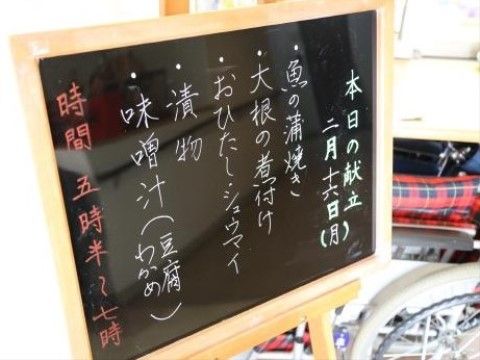 本日の献立
二月十六日(月)
・魚の蒲焼き
・大根の煮付け
・おひたし・シュウマイ
・漬物
・味噌汁(豆腐 わかめ)
時間 五時半~七時